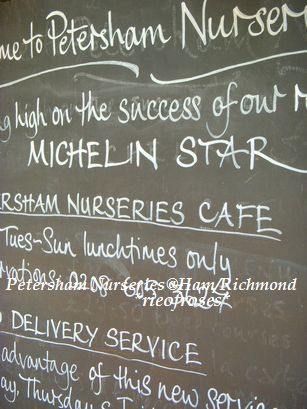 me to Petersham Nurser
g high on the success of our
MICHELIN STAR
ERSHAM NURSERIES CAFE
Tues-Sun lunchtimes only
Petersham Nurseries@Ham/Richmond
rieofroses*
DELIVERY SERVICE
advantage of this new servic
ay, Thursday &